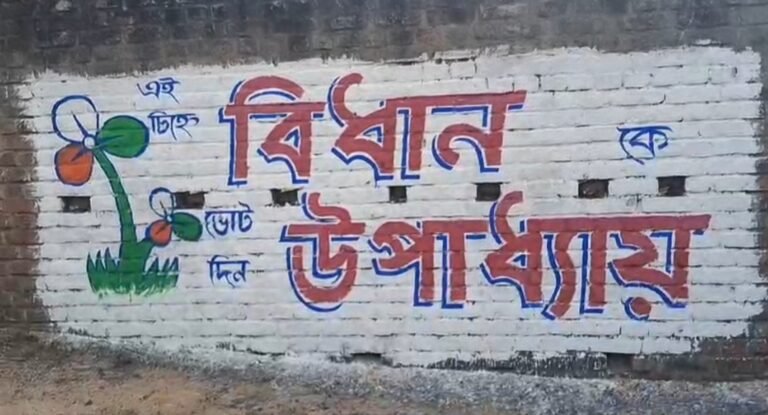 এই
চিহ্নে
বিধান কে
উপাধ্যায়
ভোট
দিন